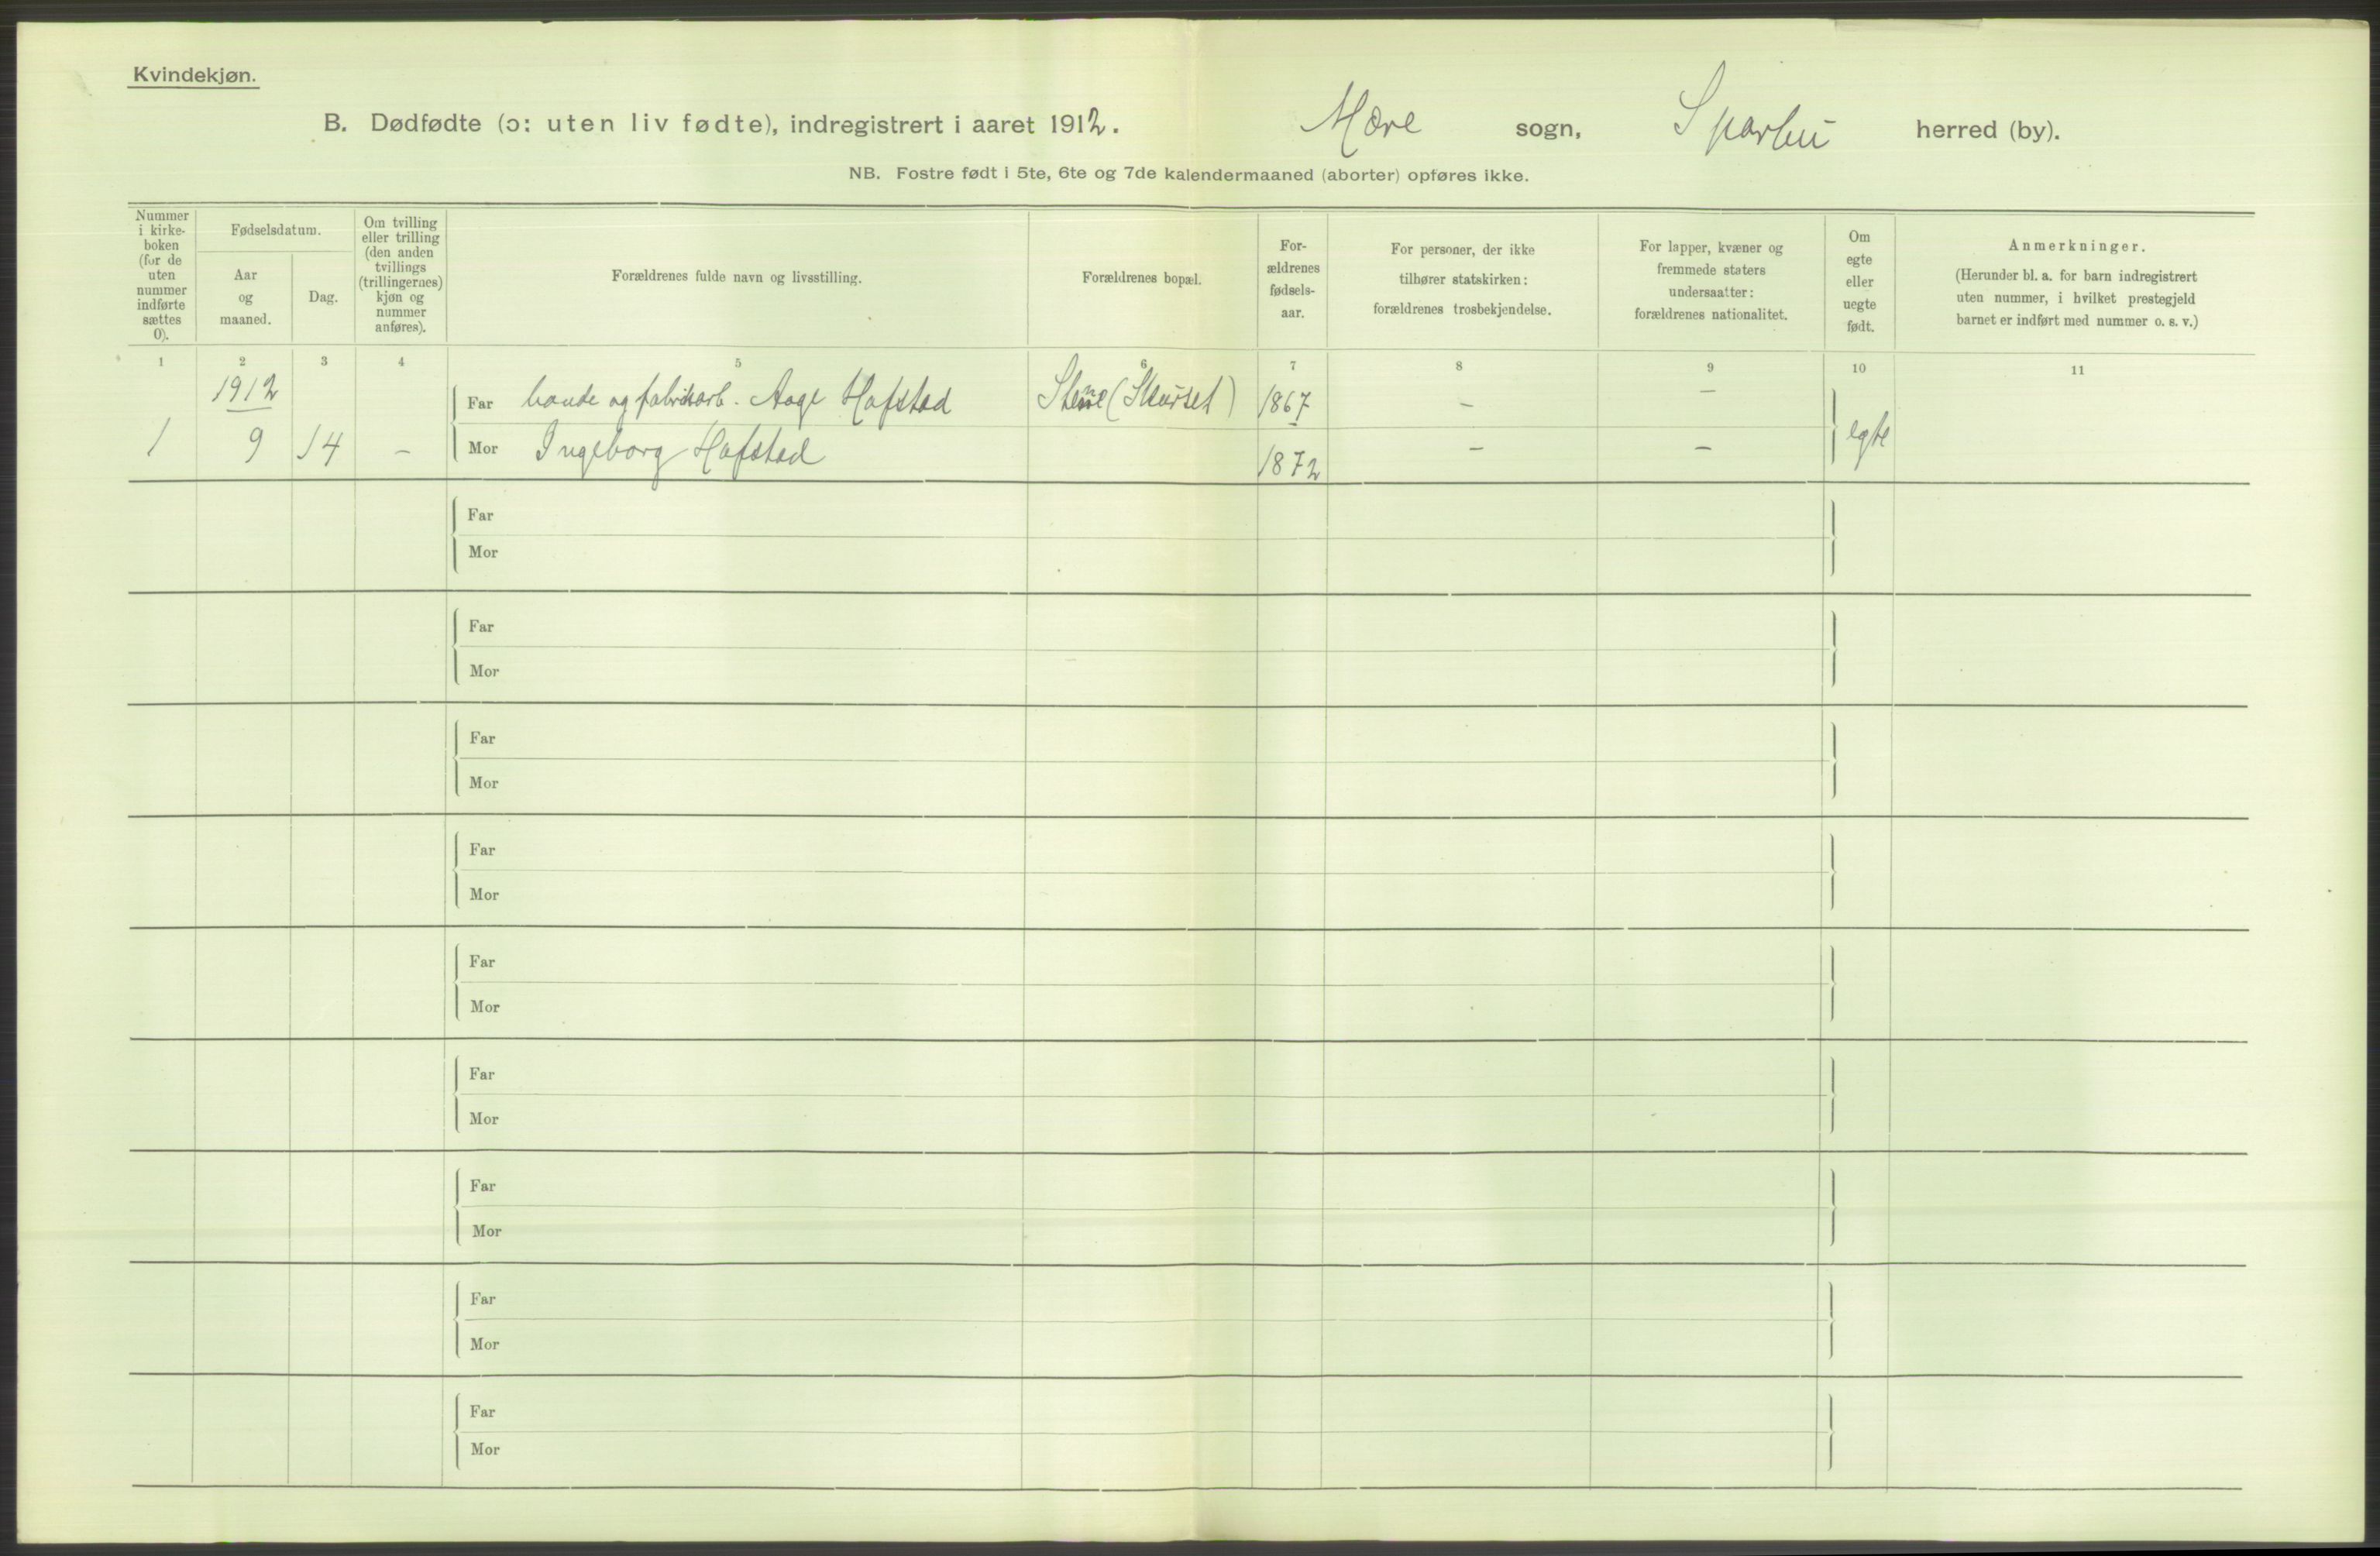 Kvindekjøn.
B. Dødfødte (ɔ: uten liv fødte), indregistrert i aaret 1912. Mære sogn, Sparbu herred (by).
NB. Fostre født i 5te, 6te og 7de kalendermaaned (aborter) opføres ikke.
Nummer i kirke-boken (for de uten nummer indførte sættes 0).
Fødselsdatum.
Aar og maaned.
Dag.
Om tvilling eller trilling (den anden tvillings (trillingernes) kjøn og nummer anføres).
Forældrenes fulde navn og livsstilling.
Forældrenes bopæl.
For-ældrenes fødsels-aar.
For personer, der ikke tilhører statskirken: forældrenes trosbekjendelse.
For lapper, kvæner og fremmede staters undersaatter: forældrenes nationalitet.
Om egte eller uegte født.
Anmerkninger. (Herunder bl. a. for barn indregistrert uten nummer, i hvilket prestegjeld barnet er indført med nummer o. s. v.)
1 2 3 4 5 6 7 8 9 10 11
1912
Far bonde og fabrikarb. Aage Hofstad Stene (Skurset) 1867 - -
1 9 14 - Mor Ingeborg Hofstad 1872 - - egte
Far
Mor
Far
Mor
Far
Mor
Far
Mor
Far
Mor
Far
Mor
Far
Mor
Far
Mor
Far
Mor